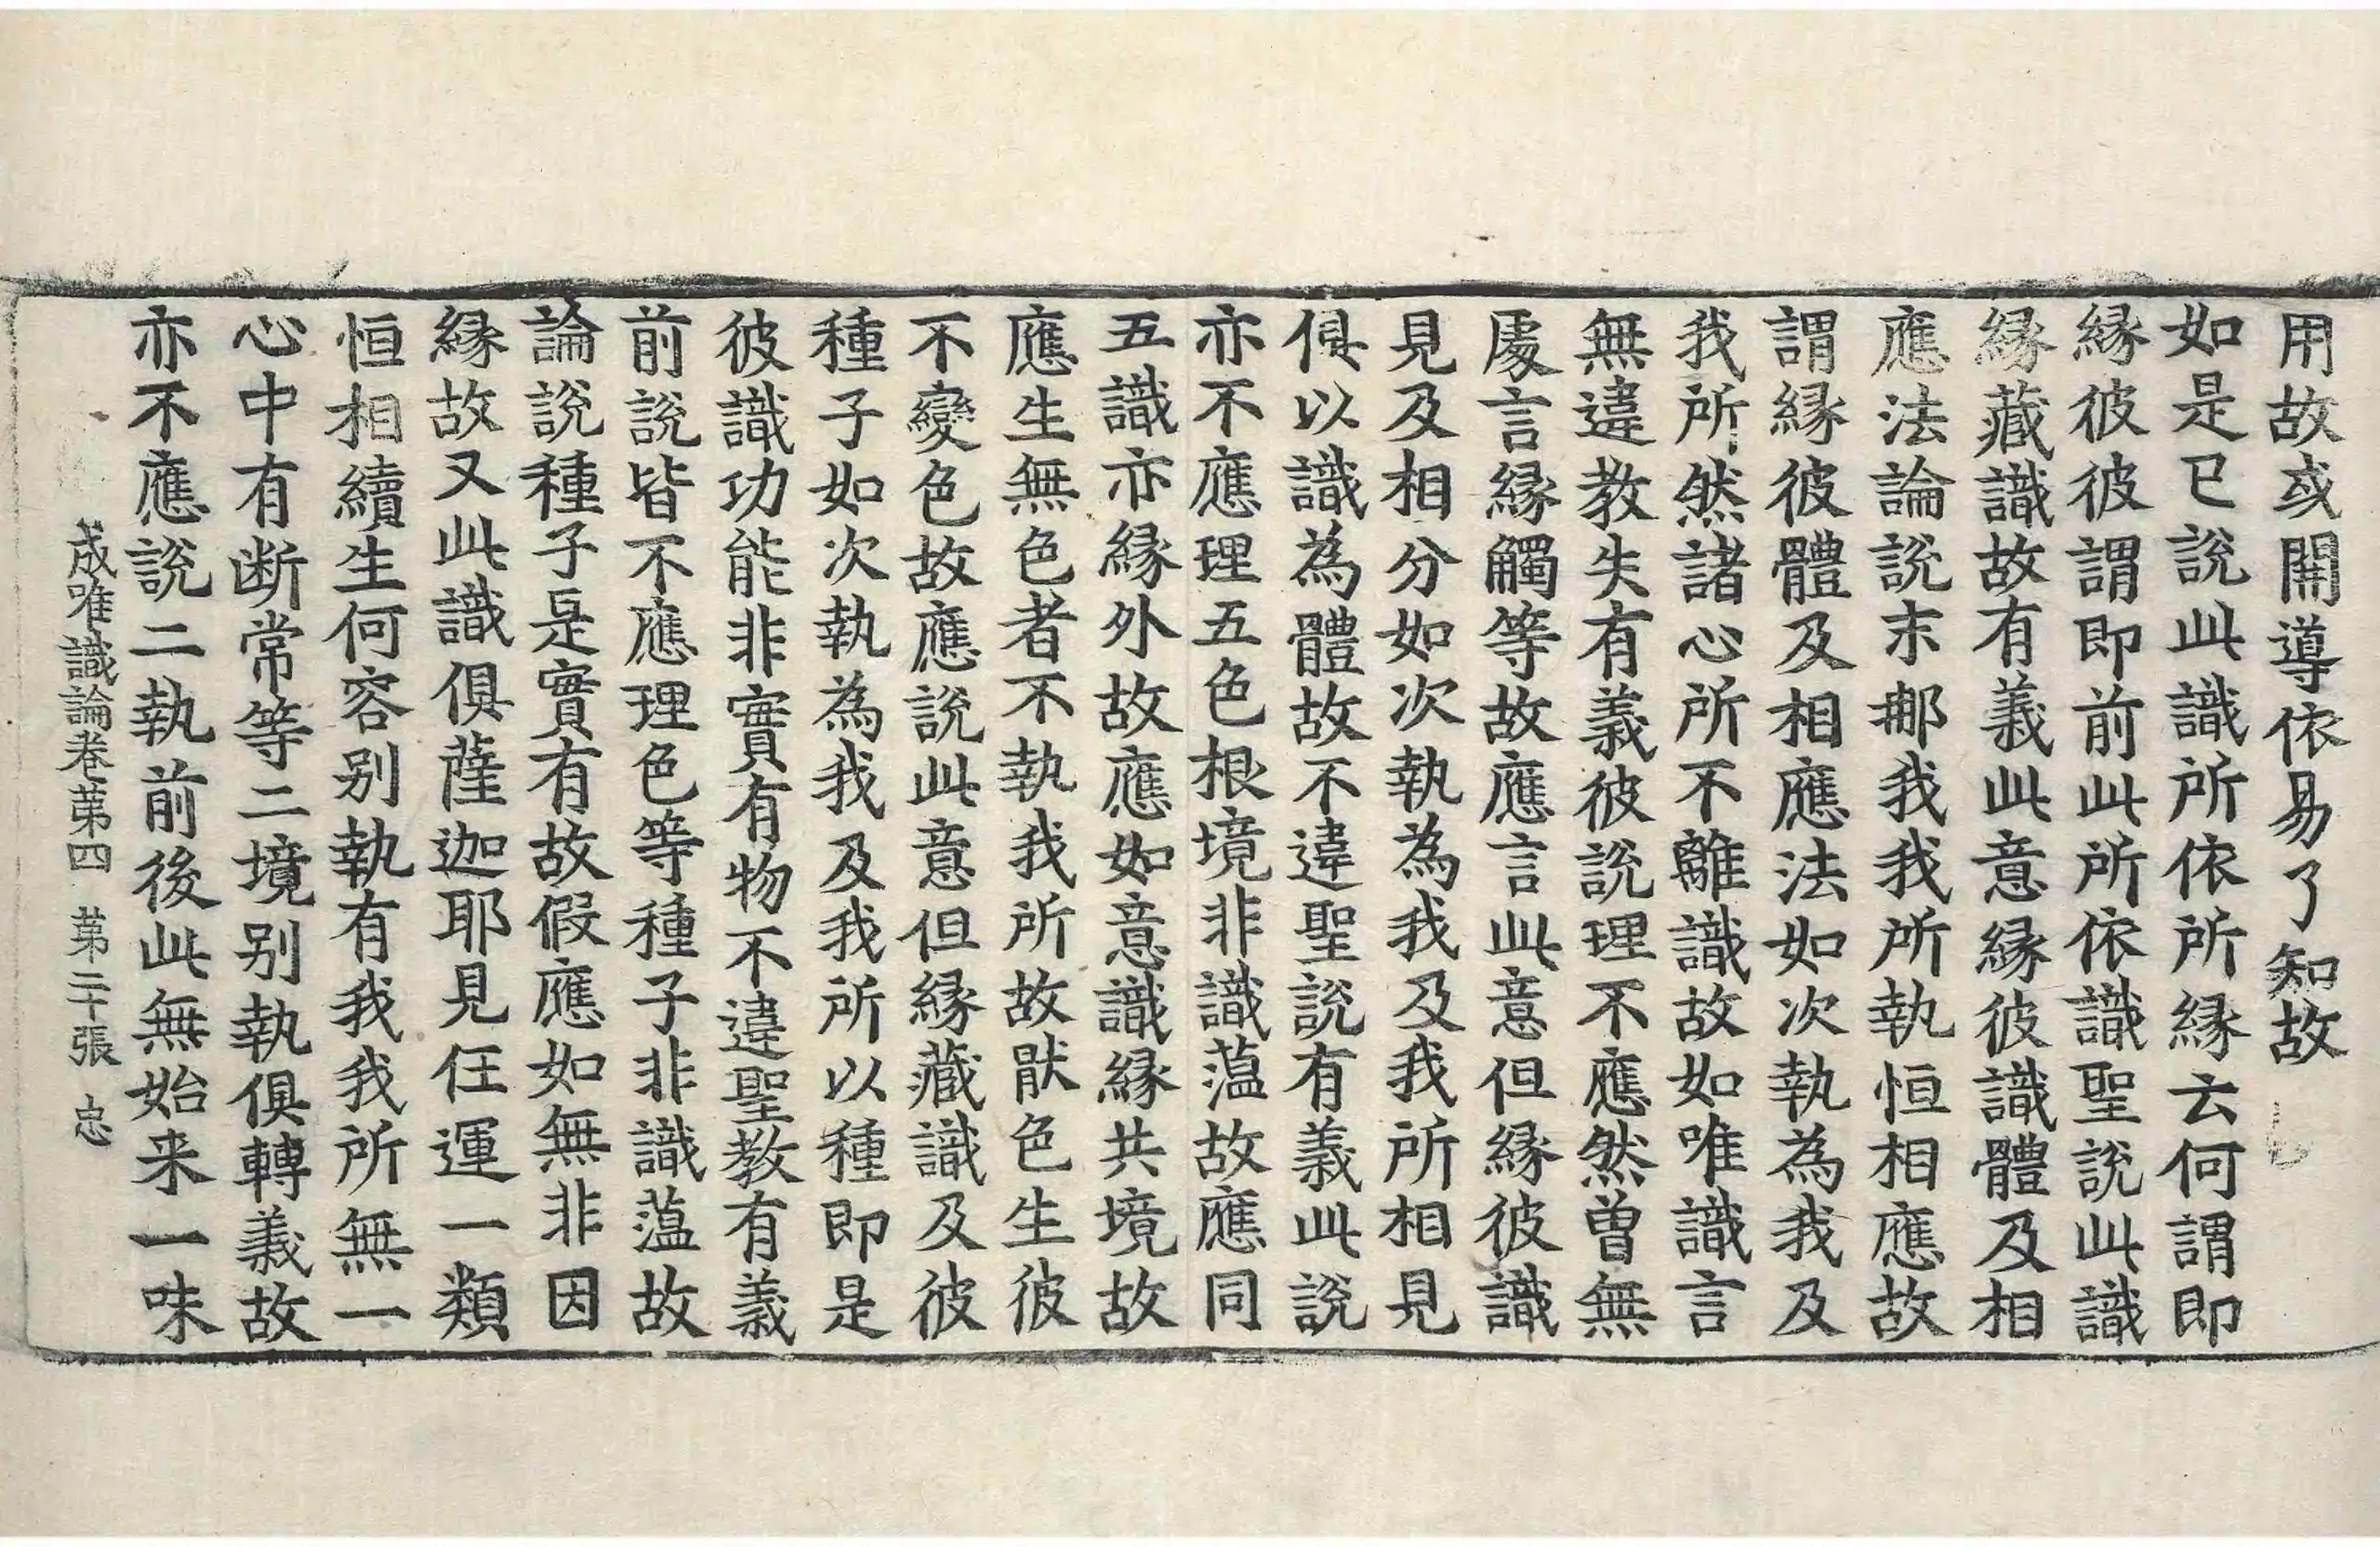 用故或開導依易了知故
如是已説此識所依所縁云何謂即
縁彼彼謂即前此所依識聖説此識
縁藏識故有義此意縁彼識體及相
應法論説末那我我所執恒相應故
謂縁彼體及相應法如次執為我及
我所然諸心所不離識故如唯識言
無違教失有義彼説理不應然曽無
處言縁觸等故應言此意但縁彼識
見及相分如次執為我及我所相見
俱以識為體故不違聖説有義此説
亦不應理五色根境非識藴故應同
五識亦縁外故應如意識縁共境故
應生無色者不執我所故猒色生彼
不變色故應説此意但縁藏識及彼
種子如次執為我及我所以種即是
彼識功能非實有物不違聖教有義
前説皆不應理色等種子非識藴故
論説種子是實有故假應如無非因
縁故又此識俱薩迦耶見任運一類
恒相續生何容别執有我我所無一
心中有断常等二境别執俱轉義故
亦不應説二執前後此無始来一味
成唯識論卷苐四　苐二十張　忠